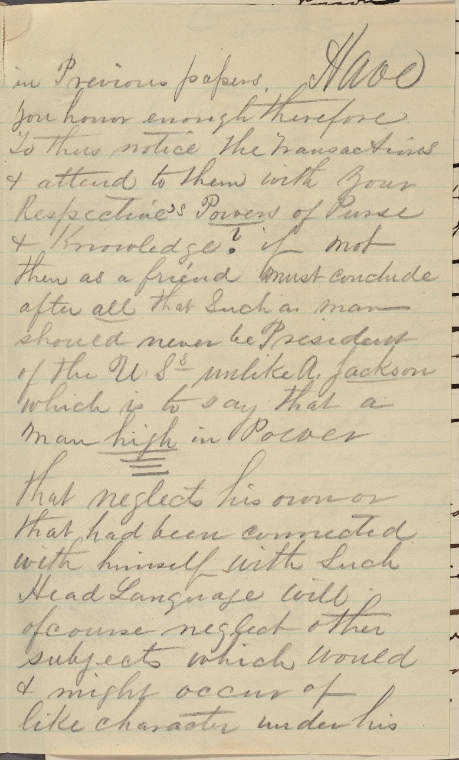 in Previous papers. Have
you honor enough therefore
To thus notice the Transactions
& attend to them with your
Respective's Powers of Purse
& Knowledge? if not
then as a friend must conclude
after all that Such a man
should never be President
of the U. Ss unlike A. Jackson
which is to say that a
man high in Power
that neglects his own or
that had been connected
with himself with Such
Head Language will
of course neglect other
subjects which would
& might occur of
like character under his